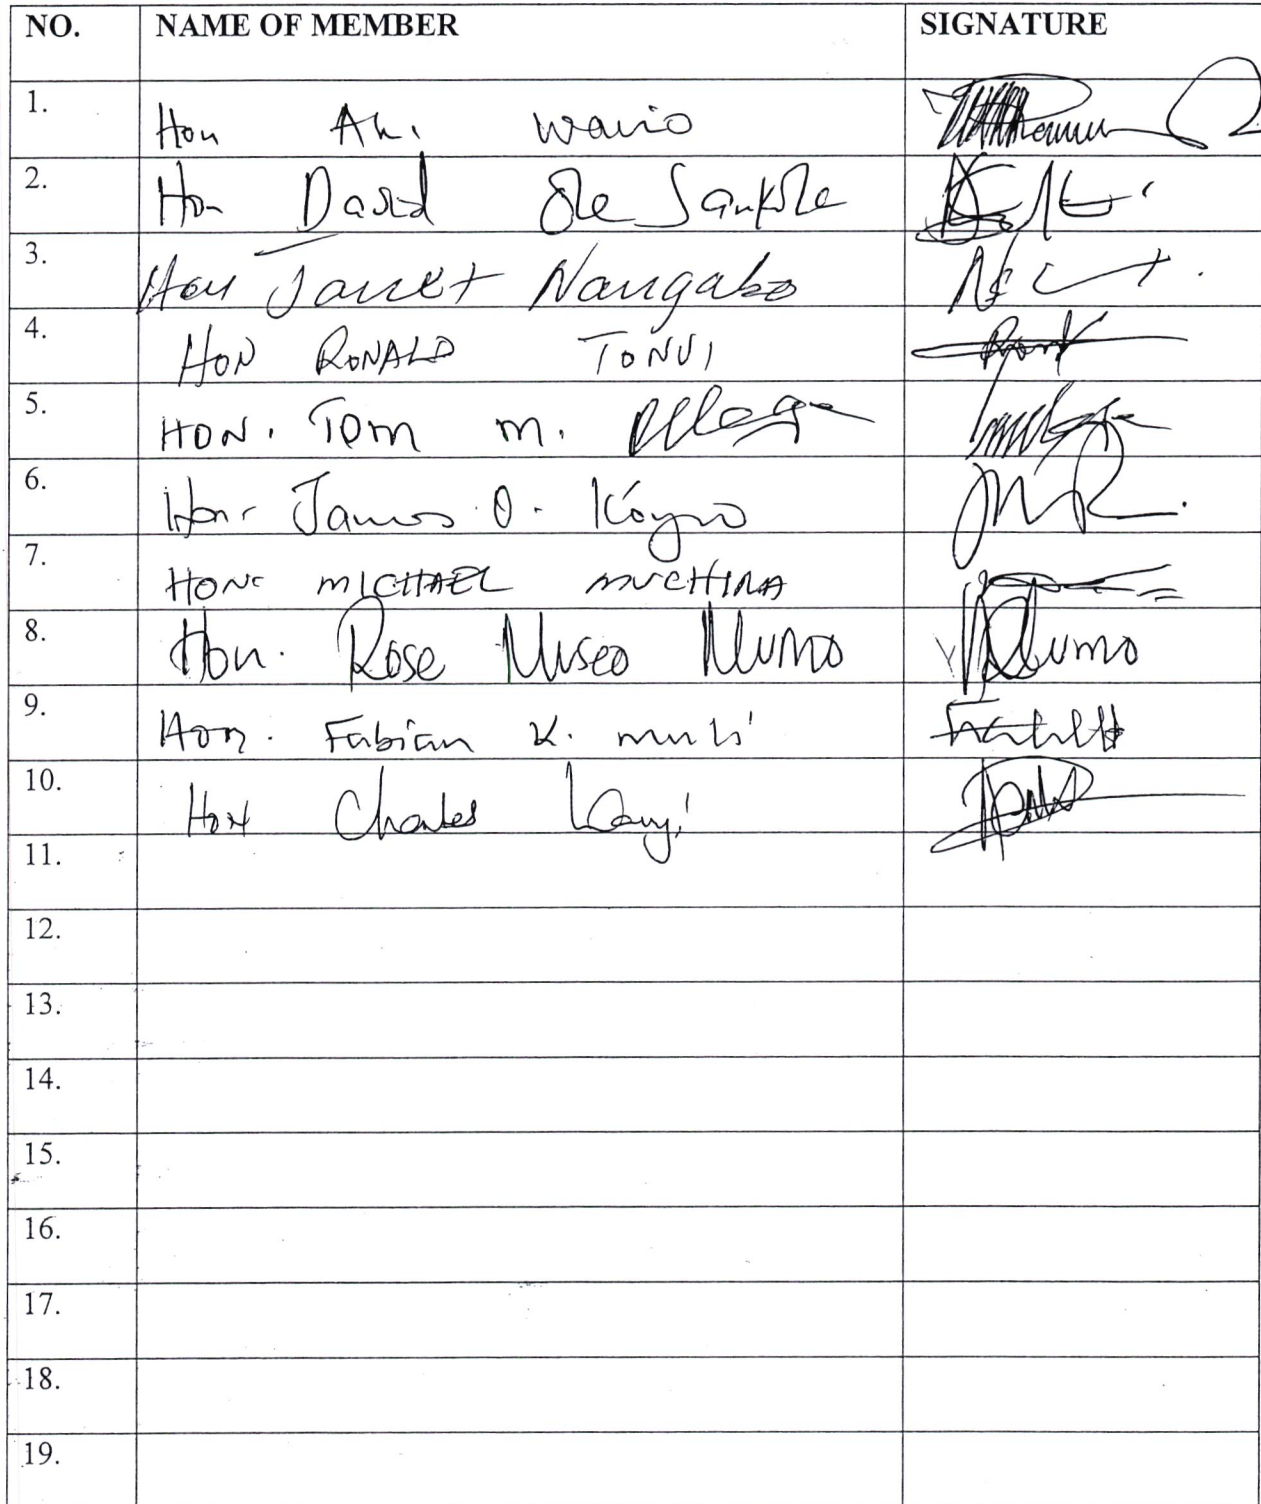 NO. NAME OF MEMBER SIGNATURE
1. Hon Wario
2. Hon David Ole Sankole
3. Hon Janet Nangabo
4. HON RONALD TONUI
5. HON. Tom M.
6. Hon. James O. Koyoo
7. HON MICHAEL MUCHIRA
8. Hon. Rose Museo Mumo Mumo
9. Hon. Fabian K. muli
10. Hon Charles
11.
12.
13.
14.
15.
16.
17.
18.
19.